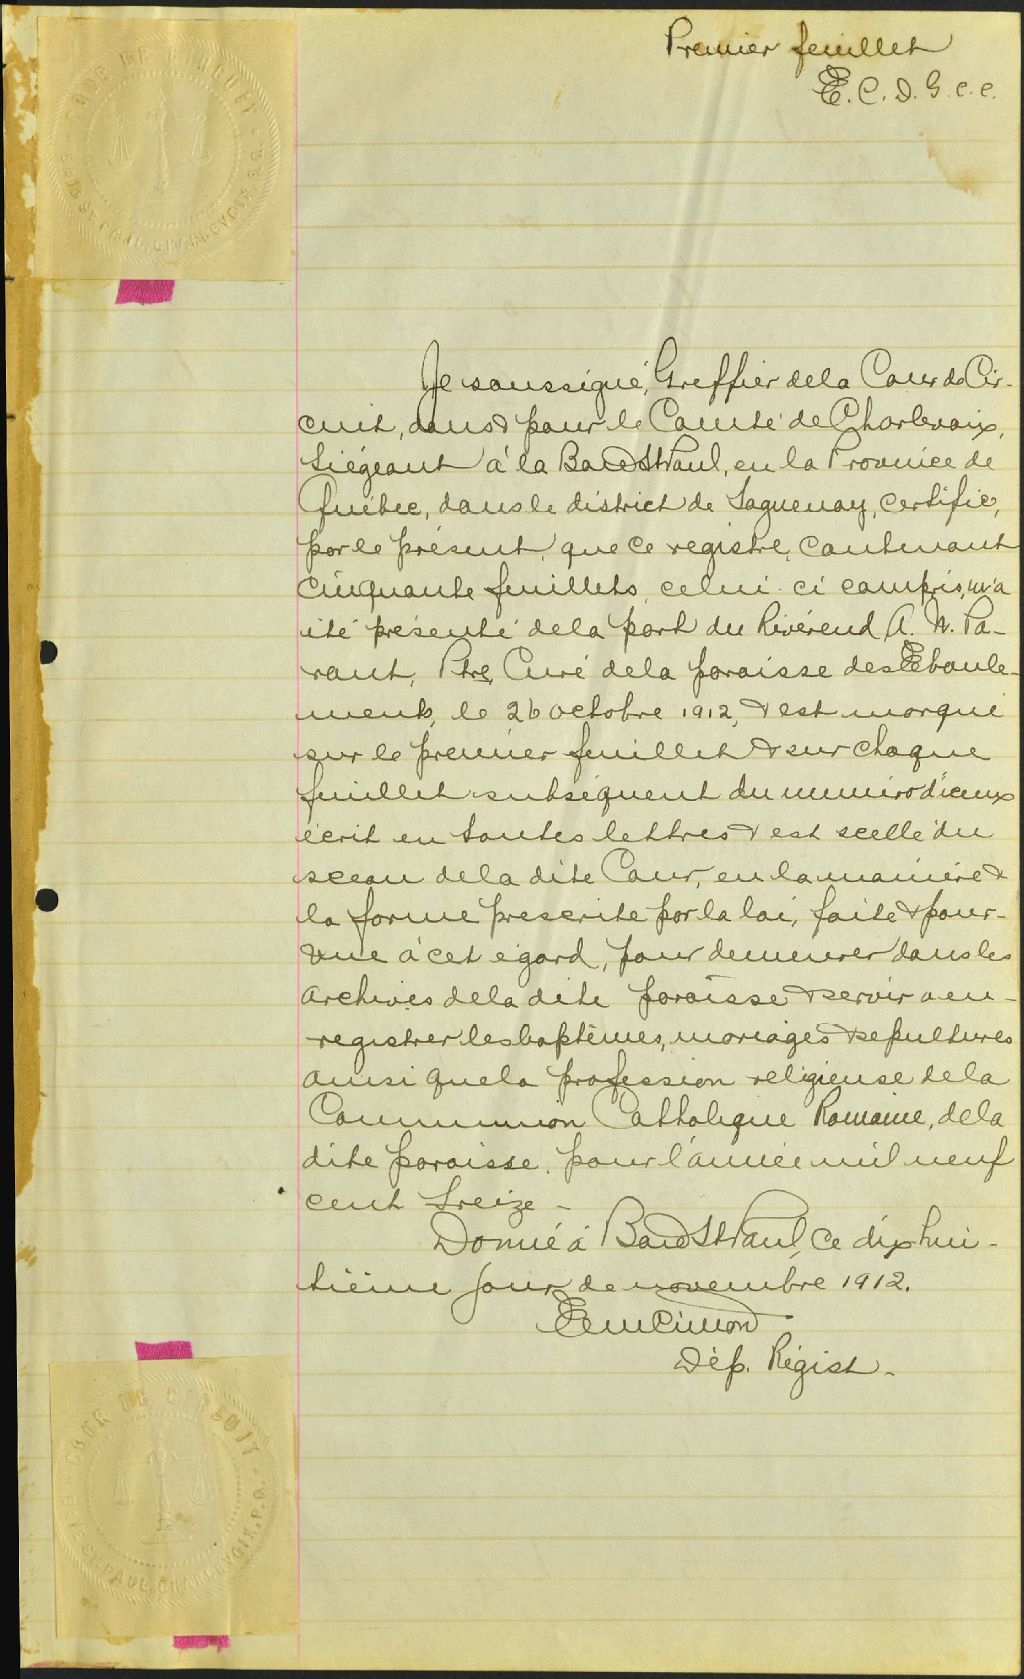 Premier feuillet
E. C. D. G. C. C.
COUR DE CIRCUIT
BAIE ST PAUL, CHARLEVOIX, P.Q.
Je soussigné, Greffier de la Cour de Cir-
cuit, dans & pour le Comté de Charlevoix,
siégeant à la Baie St Paul, en la Province de
Québec, dans le district de Saguenay, certifie,
par le présent, que ce registre, contenant
cinquante feuillets, celui-ci compris, m'a
été présenté de la part du Révérend A. N. Pa-
rant, Ptre, Curé de la paroisse des Eboule-
ments, le 26 octobre 1912, & est marqué
sur le premier feuillet & sur chaque
feuillet subséquent du numéro d'iceux
écrit en toutes lettres & est scellé du
sceau de la dite Cour, en la manière &
la forme prescrite par la loi, faite & pour-
vue à cet égard, pour demeurer dans les
archives de la dite paroisse & servir a en-
registrer les baptêmes, mariages & sepultures
ainsi que la profession religieuse de la
Communion Catholique Romaine, de la
dite paroisse, pour l'année mil neuf
cent treize -
Donné à Baie St Paul, ce dix hui-
tième jour de novembre 1912.
Em Cimon
Dép. Régist.
COUR DE CIRCUIT
BAIE ST PAUL, CHARLEVOIX, P.Q.